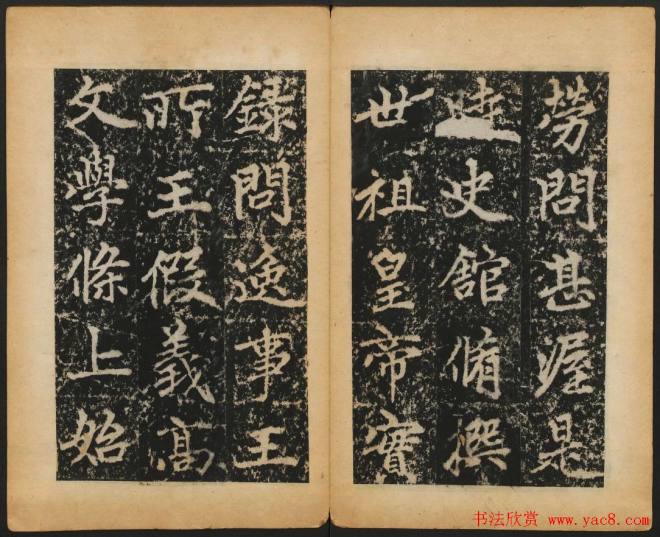 勞問甚渥是
時史館脩撰
世祖皇帝實
錄問逸事王
所王假義高
文學條上始
书法欣赏 www.yac8.com